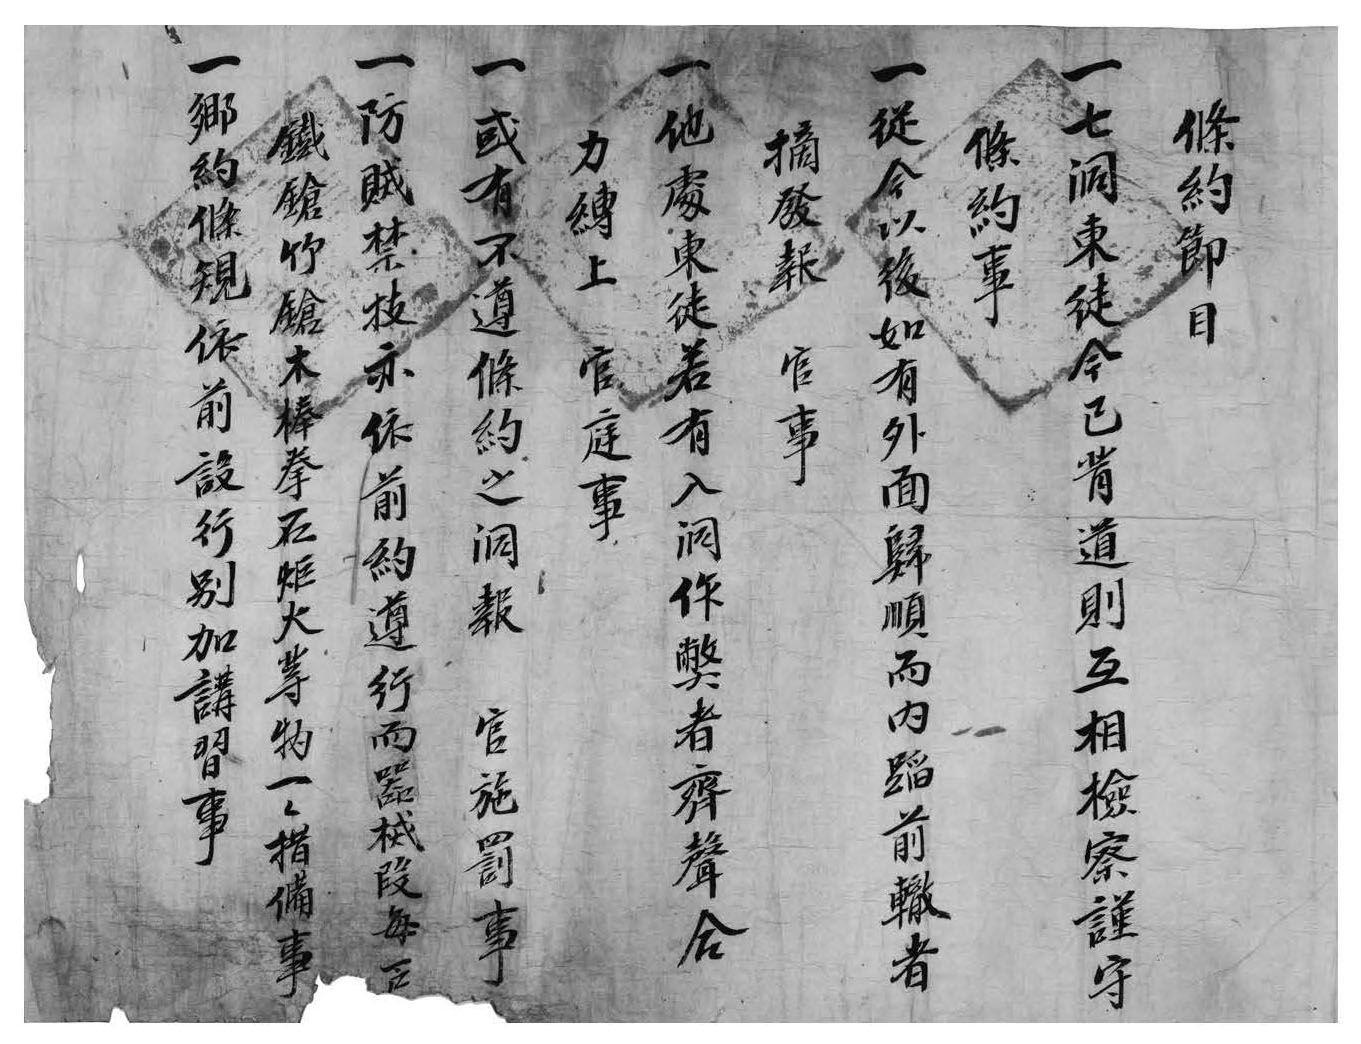 條約節目
一七洞東徒今已背道則互相檢察謹守
條約事
一從今以後如有外面歸順而內蹈前轍者
摘發報 官事
一他處東徒若有入洞作弊者齊聲合
力縛上 官庭事
一或有不遵條約之洞報 官施罰事
一防賊禁技亦依前約遵行而器械段每
鐵鎗竹鎗木棒拳石炬火等物一々措備事
一鄉約條規依前設行別加講習事